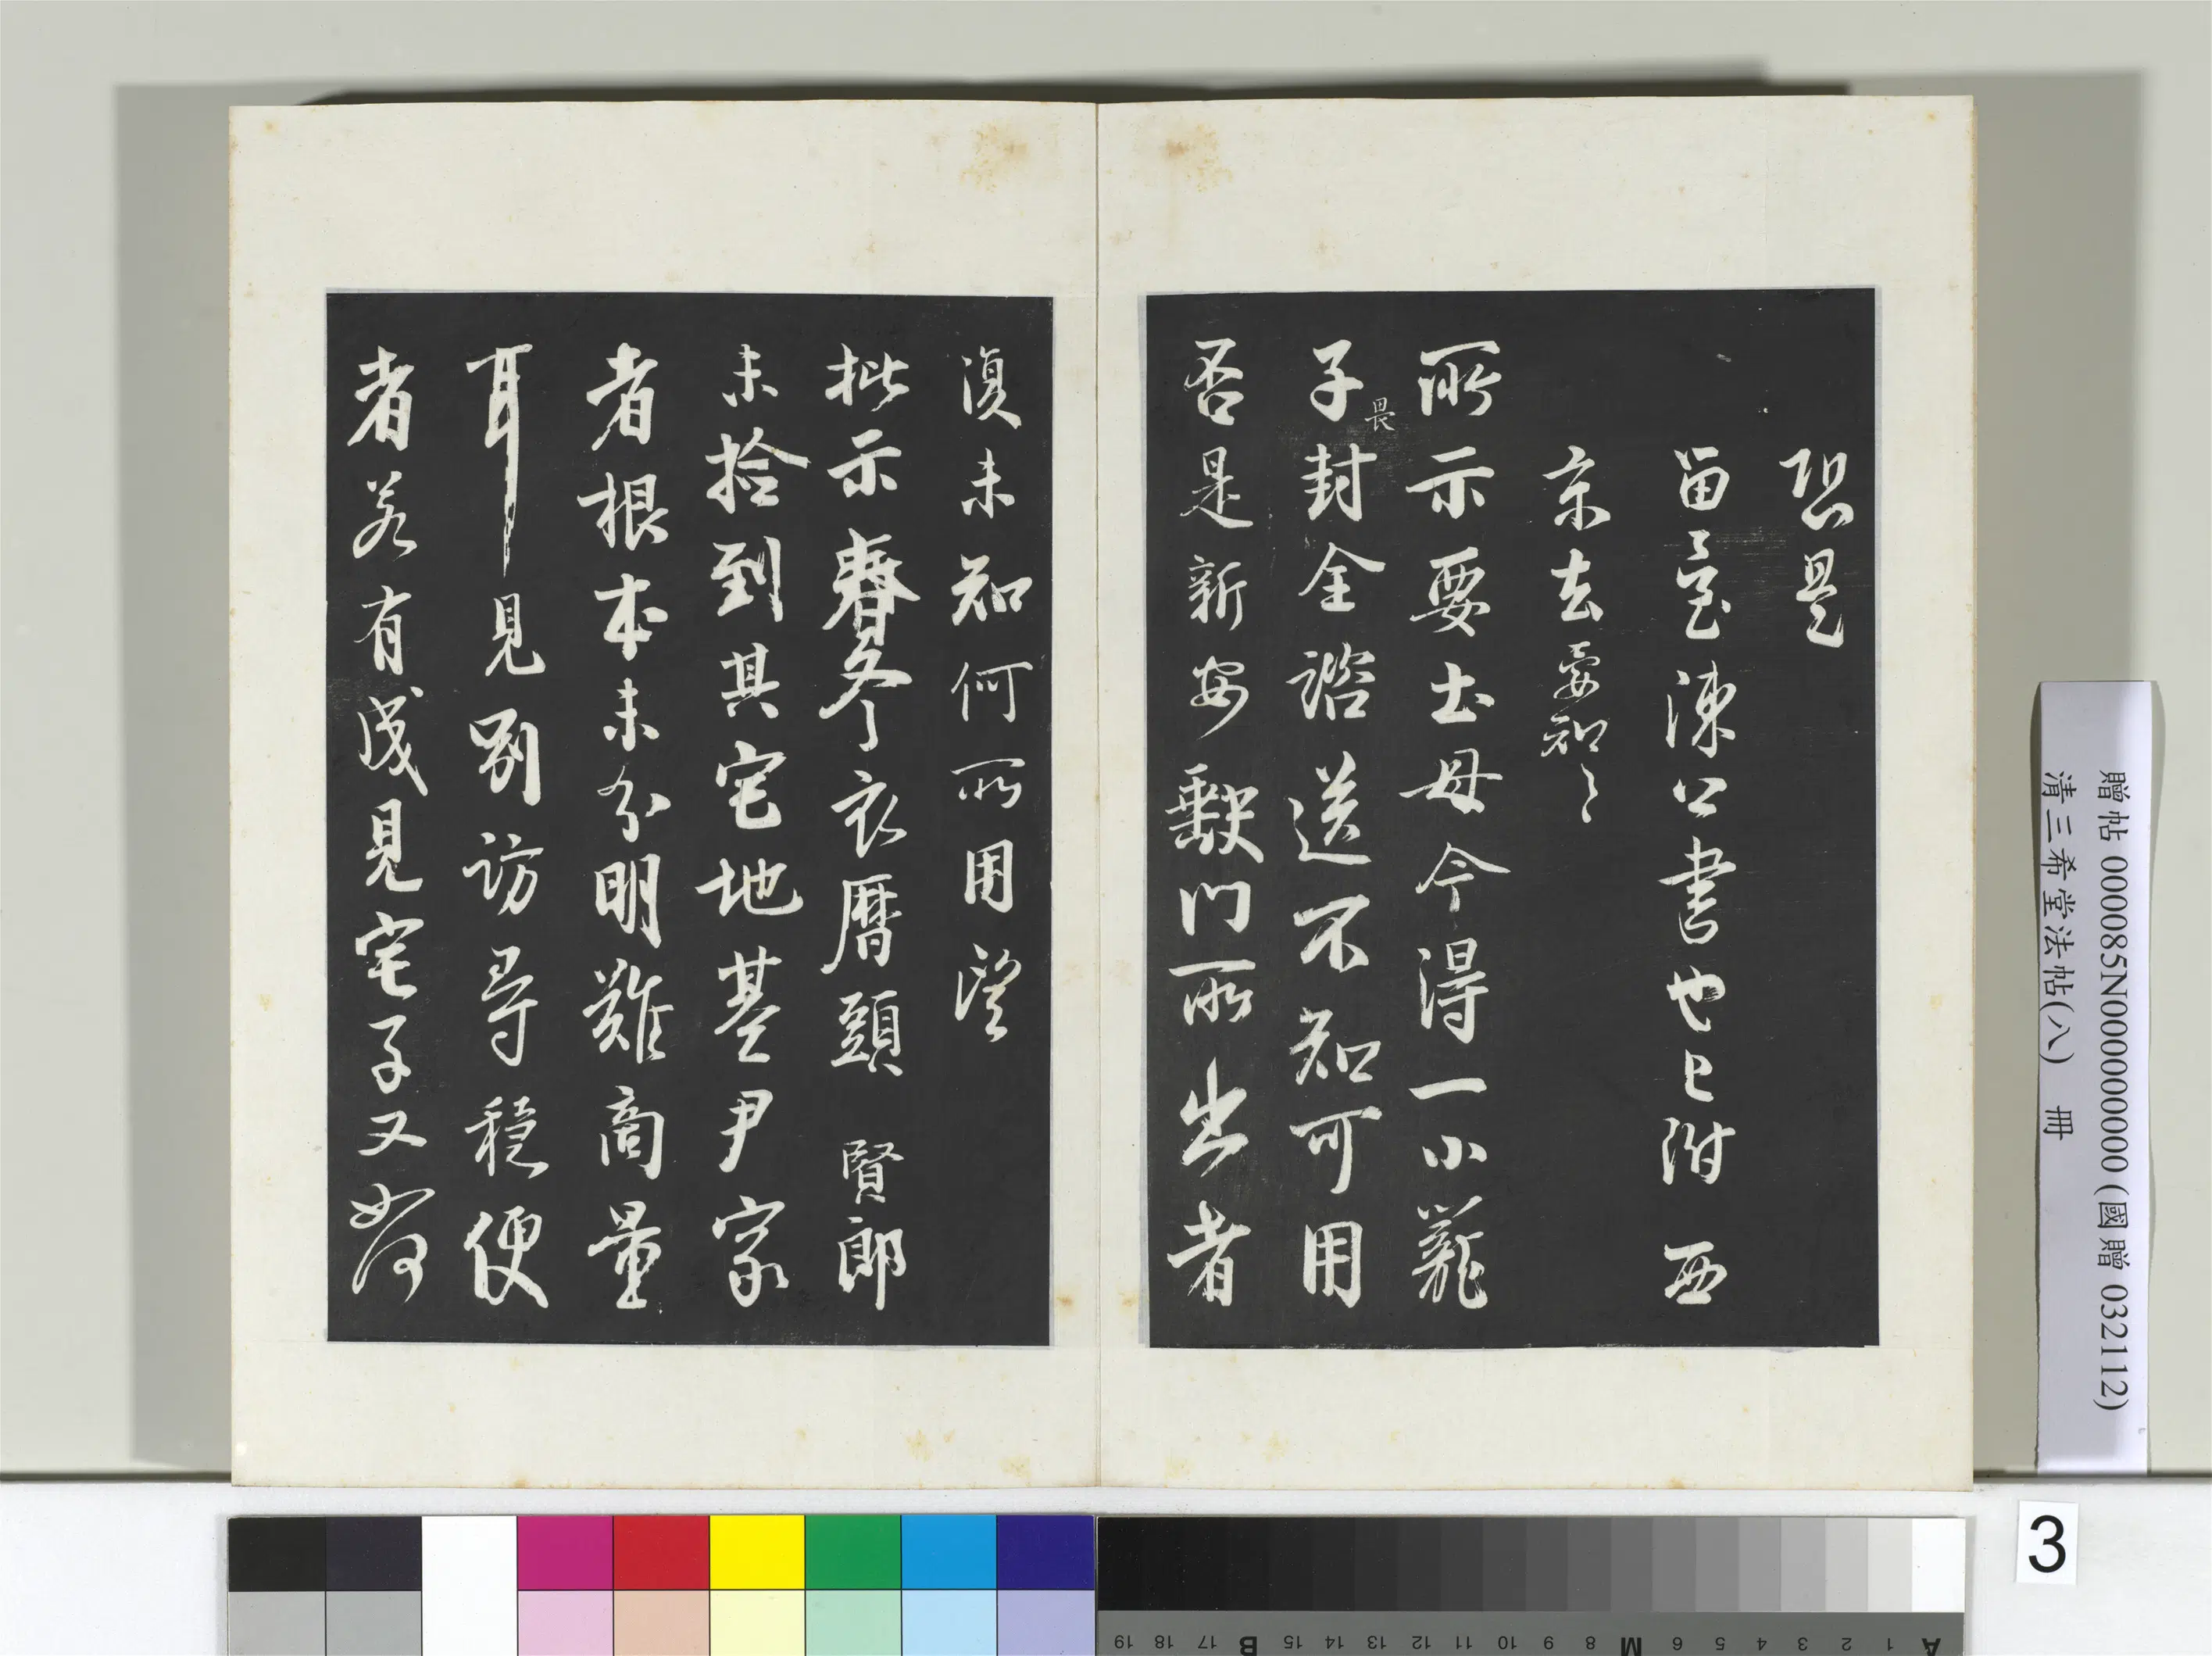 恐是
留臺陳公書也已附西
京去要知々
所示要土母今得一小籠
子封全諮送不知可用
畏
否是新安缺門所出者
復未知何所用望
批示春冬衣曆頭賢郎
未拾到其宅地基尹家
者根本未分明難商量
耳見別訪尋穩便
者若有成見宅子又如何
贈帖 000085N000000000 (國贈 032112)
清三希堂法帖(八) 冊
3
A 1 2 3 4 5 6 M 8 9 10 11 12 13 14 15 B 17 18 19